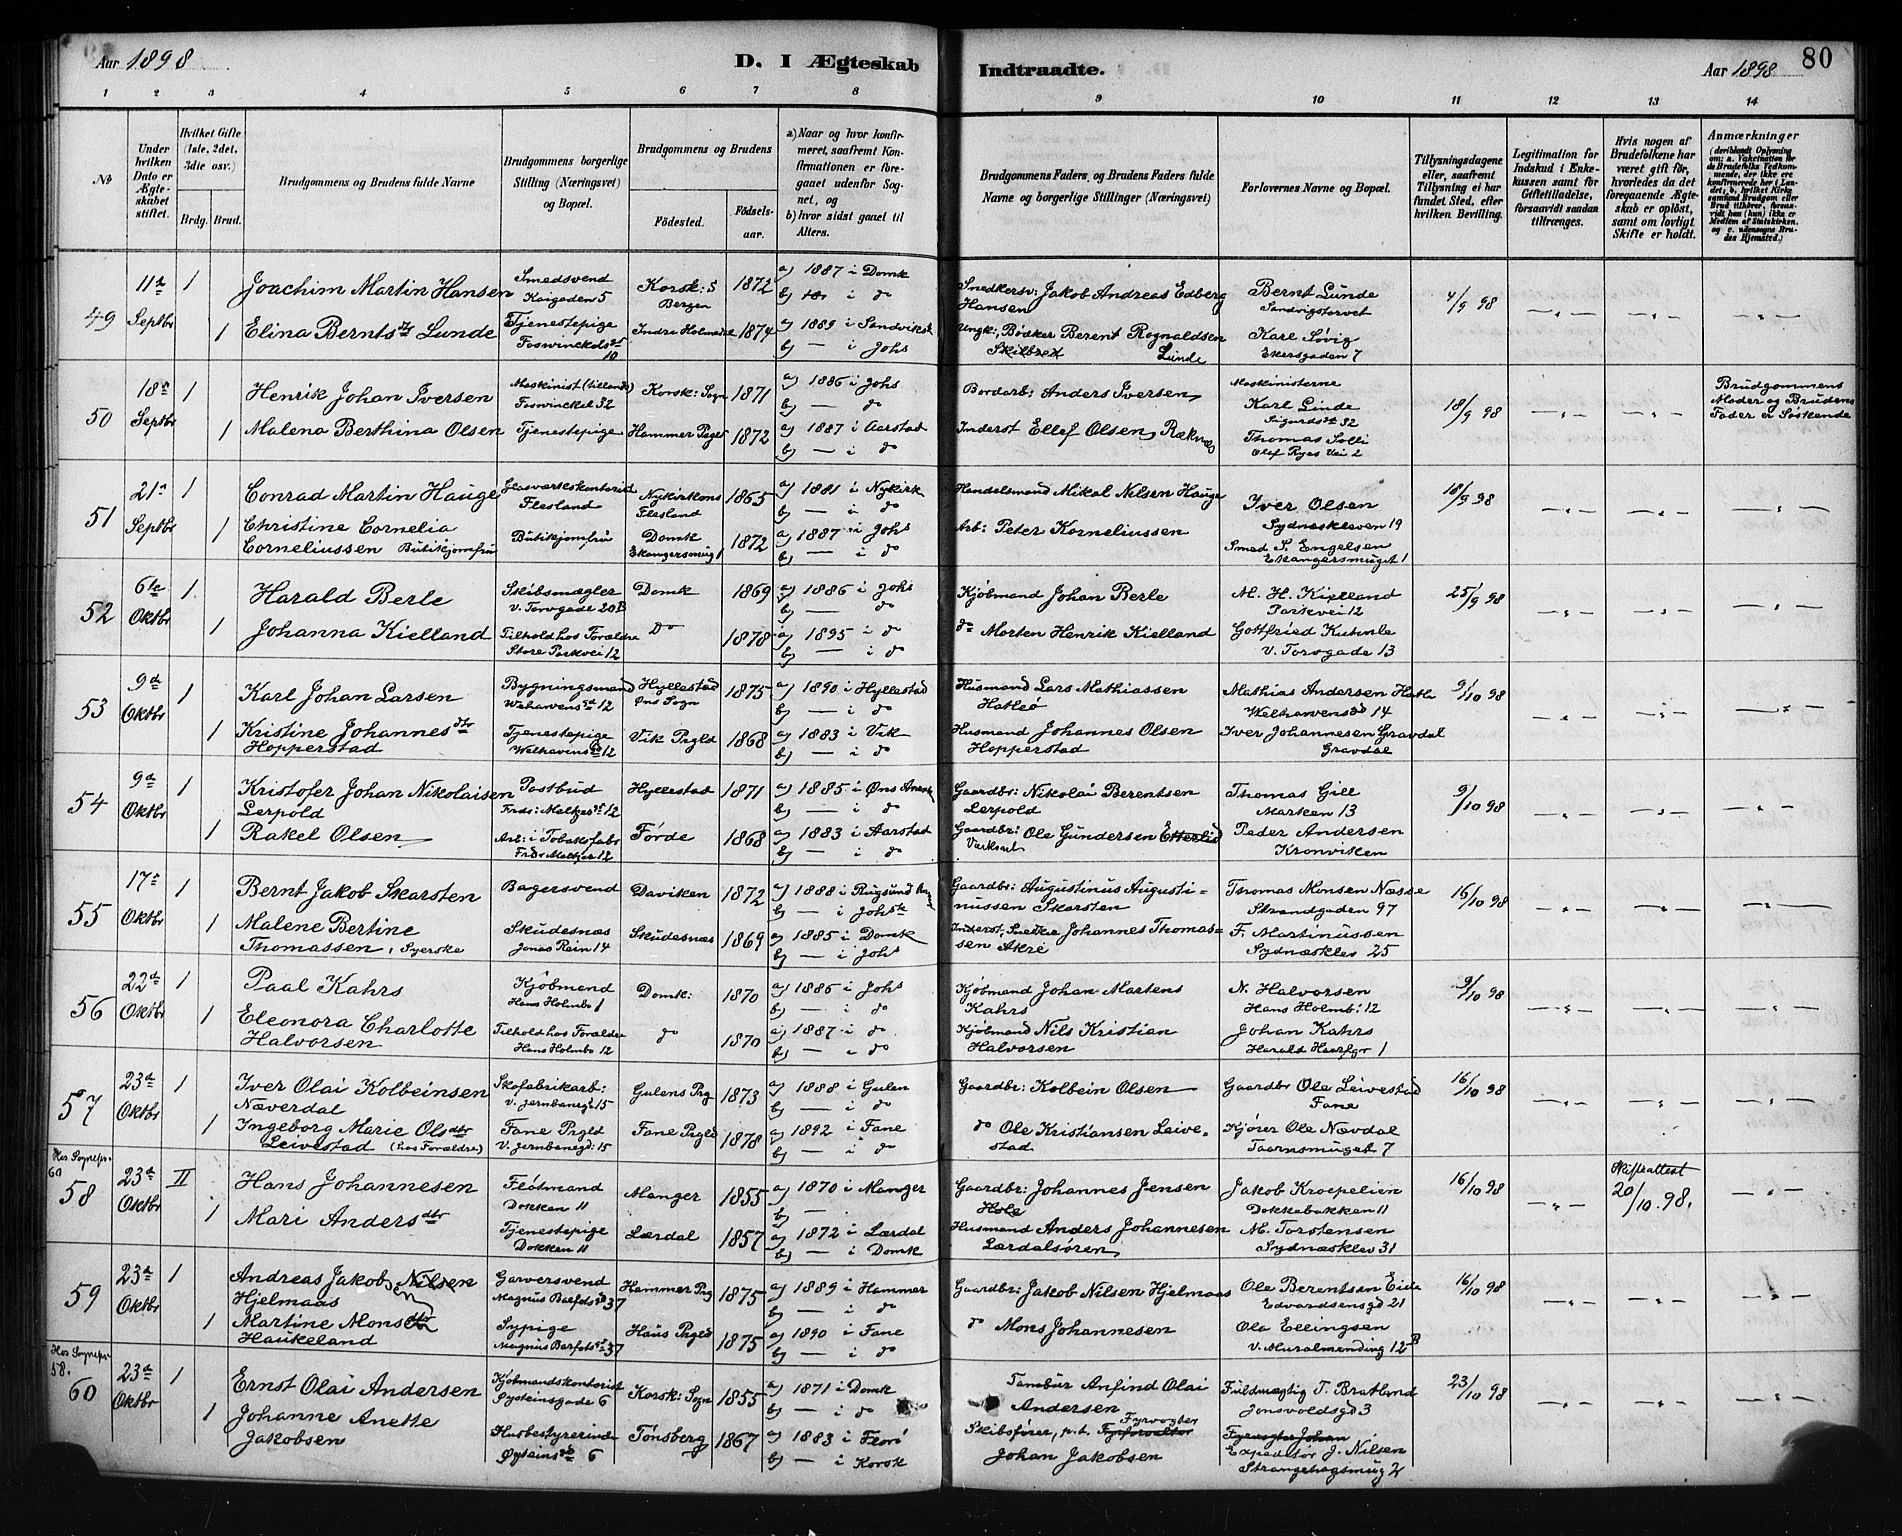 Aar 1898
D. I Ægteskab Indtraadte.
Aar 1898
80
1 2 3 4 5 6 7 8 9 10 11 12 13 14
No
Under hvilken Dato er Ægteskabet stiftet.
Hvilket Gifte (1ste, 2det, 3die osv.)
Brdg. Brud.
Brudgommens og Brudens fulde Navne
Brudgommens borgerlige Stilling (Næringsvei) og Bopæl.
Brudgommens og Brudens
Fødested.
Fødselsaar.
a) Naar og hvor konfirmeret, saafremt Konfirmationen er foregaaet udenfor Sognet, og
b) hvor sidst gaaet til Alters.
Brudgommens Faders, og Brudens Faders fulde Navne og borgerlige Stillinger (Næringsvei)
Forlovernes Navne og Bopæl.
Tillysningsdagene eller, saafremt Tillysning ei har fundet Sted, efter hvilken Bevilling.
Legitimation for Indskud i Enkekassen samt for Giftetilladelse, forsaavidt saadan tiltrænges.
Hvis nogen af Brudefolkene har været gift før, hvorledes da det foregaaende Ægteskab er opløst, samt om lovligt Skifte er holdt.
Anmærkninger
49
11te Septbr
1
Joachim Martin Hansen
Smedsvend
Kaigaden 5
Korsk: S
Bergen
1872
a) 1887 i Domk
b) i do
Snedkersv: Jakob Andreas Edberg
Hansen
Bernt Lunde
Sandvigstorvet
4/9 98
1
Elina Berntsdtr Lunde
Tjenestepige
Foswinckelsgt
10
Indre Holmedal
1874
a) 1889 i Sandviksk
b) — i Johs
Ungk: Bødker Berent Rognaldsen
Skilbred Lunde
Karl Løvig
Ekersgaden 7
50
18de Septbr
1
Henrik Johan Iversen
Maskinist (tillands)
Foswinckel 32
Korsk: Sogn
1871
a) 1886 i Johs
b) — do
Bordarb: Anders Iversen
Maskinisterne
Karl Linde
Sigurdsgt 32
18/9 98
Brudgommens
Moder og Brudens
Fader er Søskende
1
Malena Berthina Olsen
Tjenestepige
Hammer Prgld
1872
a) 1887 i Aarstad
b) — i do
Inderst Ellef Olsen Røknæs
Thomas Solli
Olaf Ryes Vei 2
51
21de Septbr
1
Conrad Martin Hauge
Flesland
Nykirkens
Flesland
1865
a) 1881 i Nykirk
b) — i do
Handelsmand Mikal Nilsen Hauge
Iver Olsen
Sydneskleven 19
18/9 98
1
Christine Cornelia
Corneliussen Butikjomfru
Butikjomfru
Domk
Ekangersmug 1
1872
a) 1887 i Johs
b) — i do
Arb: Peter Korneliussen
Smed S. Engelsen
Ekangersmuget 1
52
6te Oktbr
1
Harald Berle
Skibsmægler
V. Torvgade 20B
Domk
1869
a) 1886 i Johs
b) — do
Kjøbmand Johan Berle
M. H. Kielland
Parkvei 12
25/9 98
1
Johanna Kielland
Tilhold hos Forældre
Store Parkvei 12
Do
1878
a) 1895 i do
b) — i do
do Morten Henrik Kielland
Gottfried Kuhnle
V. Torvgade 13
53
9de Oktbr
1
Karl Johan Larsen
Bygningsmand
Welhavensgt 12
Hyllestad
Øns Sogn
1875
a) 1890 i Hyllestad
b) — i do
Husmand Lars Mathiassen
Hatleø
Mathias Andersen Hatle
Welhavensgd 14
9/10 98
1
Kristine Johannesdtr
Hopperstad
Tjenestepige
Welhavensgt 12
Vik Prgld
1868
a) 1883 i Vik
b) — i do
Husmand Johannes Olsen
Hopperstad
Iver Johannesen Gravdal
Gravdal
54
9de Oktbr
1
Kristofer Johan Nikolaisen
Lerpold
Postbud
Frds: Meltzersgt 12
Hyllestad
1871
a) 1885 i Øns Anneks
b) — i do
Gaardbr: Nikolai Berentsen
Lerpold
Thomas Gill
Marken 13
9/10 98
1
Rakel Olsen
Arb: i Tobaksfabr
Frds Meltzer 12
Førde
1868
a) 1883 i Aarstad
b) — i do
Gaardbr: Ole Gundersen Etterlid
Peder Andersen
Kronviken
55
17de Oktbr
1
Bernt Jakob Skarsten
Bagersvend
Daviken
1872
a) 1888 i Rugsund
b) — i Johsk
Gaardbr: Augustinus Augustinussen Skarsten
Thomas Monsen Næsse
Strandgaden 97
16/10 98
1
Malene Bertine
Thomassen, Syerske
Skudesnæs
Jonas Rein 14
Skudesnæs
1869
a) 1885 i Domk
b) — i Johs
Inderst, Snedker Johannes Thomassen Akre
F. Martinussen
Sydnæsklev 25
56
22de Oktbr
1
Paal Kahrs
Kjøbmand
Hans Holmbo 1
Domk:
1870
a) 1886 i Johs
b) — i do
Kjøbmand Johan Martens
Kahrs
N. Halvorsen
Hans Holmb: 12
9/10 98
1
Eleonora Charlotte
Halvorsen
Tilhold hos Forældre
Hans Holmbo 12
do
1870
a) 1887 i do
b) — i do
Kjøbmand Nils Kristian
Halvorsen
Johan Kahrs
Harald Haarfgr 1
57
23de Oktbr
1
Iver Olai Kolbeinsen
Næverdal
Skofabrikarb:
V. Jernbanegt 15
Gulens Prg
1873
a) 1888 i Gulen
b) — i do
Gaardbr: Kolbein Olsen
Gaardbr Ole Leivestad
Fane
16/10 98
1
Ingeborg Marie Olsdtr
Leivestad (hos Forældre)
Fane Prgld
V. Jernbanegd: 15
Fane Prgld
1878
a) 1892 i Fane
b) — i do
do Ole Kristiansen Leivestad
Kjører Ole Nævdal
Taarnsmuget 7
Hos Sognepr.
60
58
23de Oktbr
II
Hans Johannesen
Fløtmand
Dokken 11
Manger
1855
a) 1870 i Manger
b) —
Gaardbr: Johannes Jensen
Hole
Jakob Kroepelien
Dokkebakken 11
16/10 98
Skifteattest
20/10. 98.
1
Mari Andersdtr
Tjenestepige
Dokken 11
Lærdal
1857
a) 1872 i Lærdal
b) — i Domk
Husmand Anders Johannesen
Lærdalsøren
M. Torstensen
Sydnæsklev 31
59
23de Oktbr
1
Andreas Jakobsen Nilsen
Hjelmaas
Garversvend
Magnus Barfotsgd 37
Hammer Prg
1875
a) 1889 i Hammer
b) — i do
Gaardbr: Jakob Nilsen Hjelmaas
Ole Berentsen Eide
Edvardsensgd 21
16/10 98
1
Martine Monsdtr
Haukeland
Sypige
Magnus Barfotsgt 37
Haus Prgld
1875
a) 1890 i Fane
b) — i do
do Mons Johannesen
Ole Ellingsen
V. Muralmending 12B
Hos Sognepr.
58.
60
23de Oktbr
1
Ernst Olai Andersen
Kjøbmandskontorist
Øysteinsgade 6
Korsk: Sogn
1855
a) 1871 i Domk
b) — i do
Tambur Anfind Olai
Andersen
Fuldmægtig T. Bratland
Jonsvoldsgd 3
23/10 98
1
Johanne Anette
Jakobsen
Husbestyrerinde
Øysteinsgd 6
Tønsberg
1867
a) 1883 i Florø
b) — i Korsk
Skibsfører, p.t. Fyrforvalter Fyrvogter
Johan Jakobsen
Fyrvogter Johan
Expeditør J. Nilsen
Strangehagsmug 2